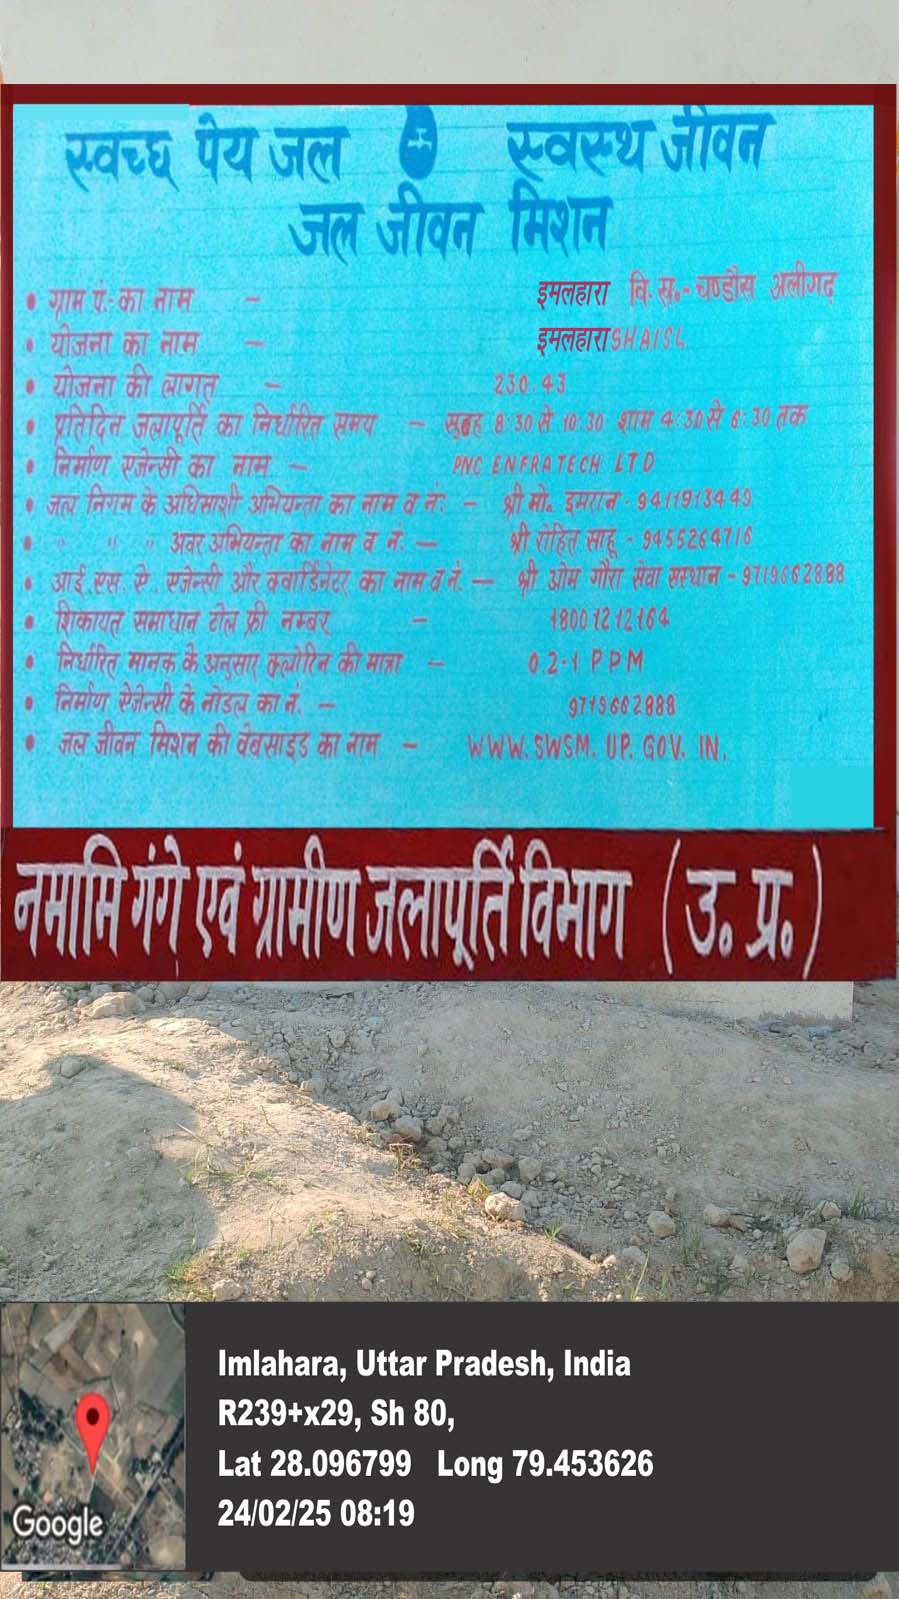 स्वच्छ पेय जल स्वस्थ जीवन
जल जीवन मिशन
• ग्राम पं:- का नाम - इमलहारा वि. ख.- चण्डौस अलीगढ़
• योजना का नाम - इमलहारा SHAISL
• योजना की लागत - 230.43
• प्रतिदिन जलापूर्ति का निर्धारित समय - सुबह 8:30 से 10:30 शाम 4:30 से 6:30 तक
• निर्माण एजेन्सी का नाम - PNC ENFRATECH LTD
• जल निगम के अधिसाशी अभियन्ता का नाम व नं: - श्री मो. इमरान - 9411913449
• " " " अवर अभियन्ता का नाम व नं. - श्री रोहित साहू - 9455264716
• आई. एस. ऐ. एजेन्सी और क्वार्डिनेटर का नाम व नं. - श्री ओम गौरा सेवा सस्थान - 9719662888
• शिकायत समाधान टोल फ्री नम्बर - 18001212164
• निर्धारित मानक के अनुसार क्लोरिन की मात्रा - 0.2-1 PPM
• निर्माण ऐजेन्सी के नोडल का नं. - 9719662888
• जल जीवन मिशन की वेबसाइड का नाम - WWW. SWSM. UP. GOV. IN.
नमामि गंगे एवं ग्रामीण जलापूर्ति विभाग (उ. प्र.)
Imlahara, Uttar Pradesh, India
R239+x29, Sh 80,
Lat 28.096799 Long 79.453626
24/02/25 08:19
Google